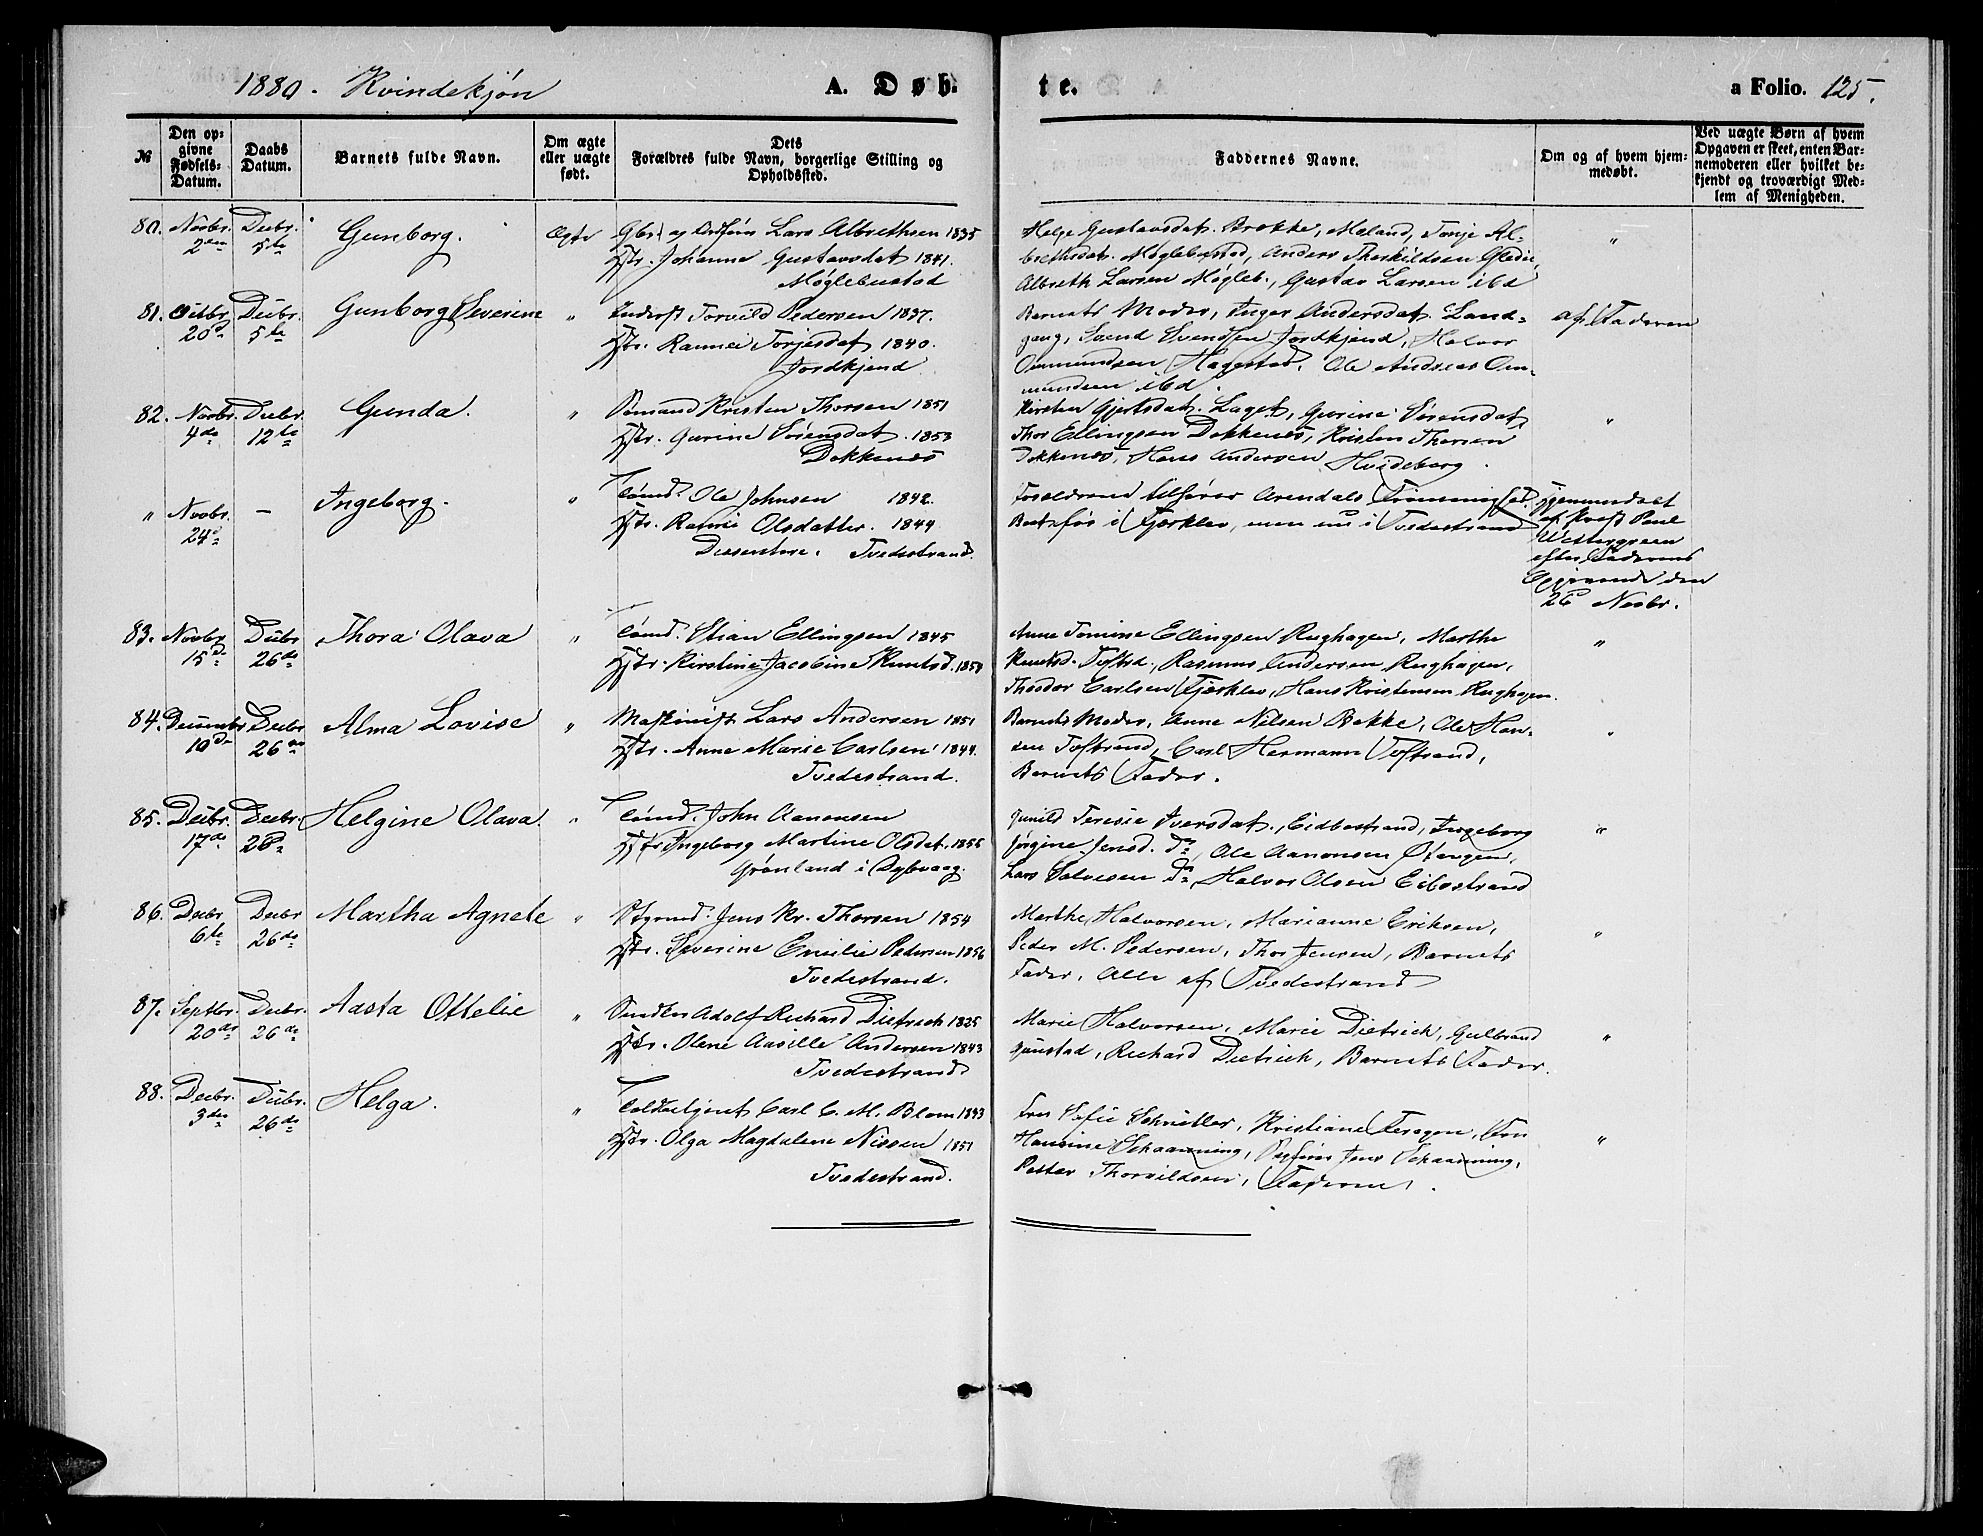 1880. Kvindekjøn A. Døbte. a Folio. 125.
№
Den opgivne Fødsels-Datum.
Daabs Datum.
Barnets fulde Navn.
Om ægte eller uægte født.
Dets Forældres fulde Navn, borgerlige Stilling og Opholdssted.
Faddernes Navne.
Om og af hvem hjemmedøbt.
Ved uægte Børn af hvem Opgaven er skeet, enten Barnemoderen eller hvilket bekjendt og troværdigt Medlem af Menigheden.
80. Novbr. Decbr. Gunborg. Ægte Gbr. og Lars Albrethsen 1835
2den 5te Hstr. Johanne Gustavsdat 1841.
Møglebustad
Helje Gustavsdat. Brekke, Møland, Tonje Al-
brethsdat. Møglebustad, Anders Therkildsen
Albreth Larsen Møgleb., Gustav Larsen ibd
81. Octbr. Decbr. Gunborg Severine " Inderst Torvild Pedersen 1837.
20d 5te Hstr. Rannei Torjesdat 1840.
Jordkjend
Barnets Moder, Inger Andersdat. Land-
gang, Svend Svendsen Jordkjend, Halvor
Ommundsen Hagestad, Ole Andreas Om-
mundsen ibd.
af Faderen
82. Novbr. Decbr. Gunda. " Sømand Kristen Thorsen 1851
4de 12te Hstr. Gurine Sørensdat. 1853
Dokkenes
Kirsten Gjertsdat. Laget, Gurine Sørensdat,
Thor Ellingsen Dokkenes, Kristen Thorsen
Dokkenes, Hans Andersen Hvideberg.
"
" Novbr. – Ingeborg. " Tømd. Ole Johnsen 1842.
24de Hstr. Rannie Olsdatter. 1844
Tvedestrand.
Forældrene tilhører Arendals
i Fjærklev, men nu i Tvedestrand
hjemmedøbt
af Paul
Westergreen
efter Faderens
Opgivende den
26 Novbr.
83. Novbr. Decbr. Thora Olava " Tømd. Stian Ellingsen 1845
15de 26de Hstr. Kirstine Jacobine Knutsd. 1850
Anne Tomine Ellingsen Rughagen, Marthe
Knutsd. Tofted., Rasmus Andersen Rughagen,
Theodor Carlsen Fjærklev, Hans Kristensen Rughagen.
"
84. Decembr. Decbr. Alma Lovise " Maskinist Lars Andersen 1851
10de 26de Hstr. Anne Marie Carlsen 1844.
Tvedestrand.
Barnets Moder, Anne Nilsen Bakke, Ole Han-
sen Toftsund, Carl Hermann Toftsund,
Barnets Fader.
"
85. Decbr. Decbr. Helgine Olava. " Tømd. John Aanonsen
17de 26de Hstr. Ingeborg Martine Olsdat. 1855
Grønland i Dybvaag.
Gunild Teresie Iversdat., Eidbostrand, Ingeborg
Jørgine Jensd. do, Ole Aanonsen Stangen,
Lars Salvesen do, Halvor Olsen Eibostrand
"
86. Decbr. Decbr. Martha Agnete " Styrmd. Jens Kr. Thorsen 1854
6te 26de Hstr. Severine Emilie Pedersen 1856
Tvedestrand.
Marthe Halvorsen, Marianne Eriksen,
Peder M. Pedersen, Thor Jensen, Barnets
Fader, Alle af Tvedestrand
"
87. Septbr. Decbr. Aasta Ottelie " Adolf Richard Dietrich 1825
20de 26de Hstr. Olene Aasille Andersen 1843
Tvedestrand
Marie Halvorsen, Marie Dietrich, Gulbrand
Richard Dietrich, Barnets Fader.
"
88. Decbr. Decbr. Helga. " Toldbetjent Carl C. M. Blom 1843
3die 26de Hstr. Olga Magdalene Nissen 1851
Tvedestrand.
Fru Sofie Schnitler, Kristiane Feragen, Fru
Hansine Schaanning, Jens Schaanning,
Petter Thorvildsen, Faderen.
"